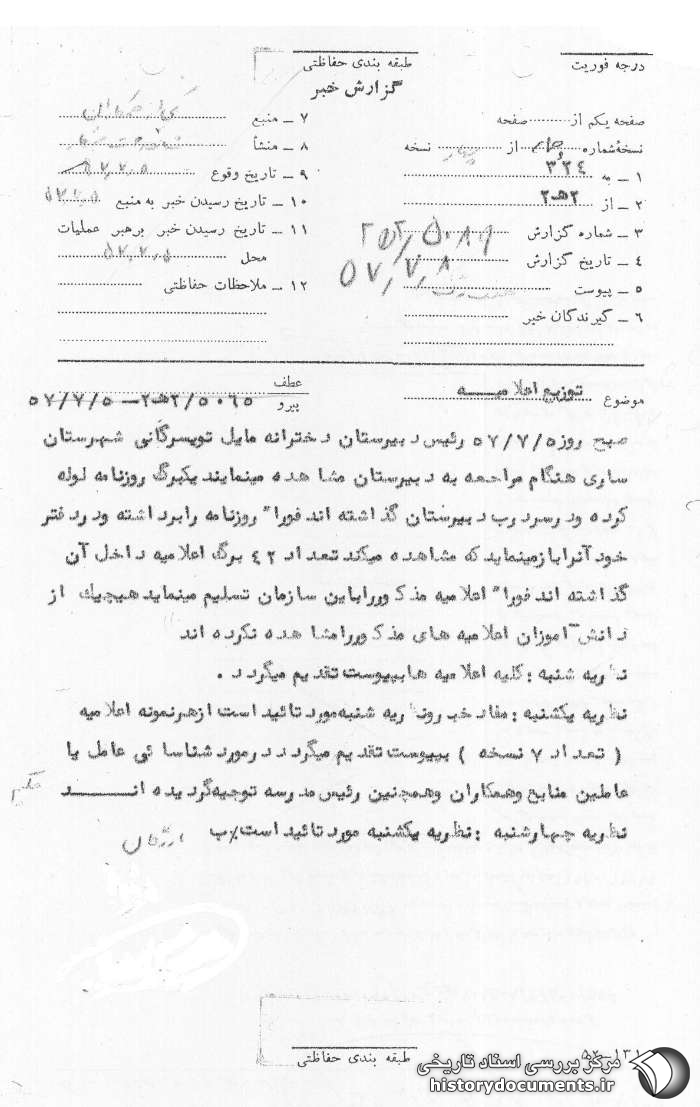 درجه فوریت
طبقه بندی حفاظتی
گزارش خبر
صفحه یکم از صفحه
نسخهٔ شماره از نسخه
۱ ــ به ۳۲٤
۲ ــ از ۲هـ۲
۳ ــ شماره گزارش
٤ ــ تاریخ گزارش ۵۷/۷/۸
۵ ــ پیوست
٦ ــ گیرندگان خبر
۷ ــ منبع
۸ ــ منشأ
۹ ــ تاریخ وقوع ۵۷/۷/۵
۱۰ ــ تاریخ رسیدن خبر به منبع ۵۷/۷/۵
۱۱ ــ تاریخ رسیدن خبر برهبر عملیات
محل ۵۷/۷/۵
۱۲ ــ ملاحظات حفاظتی
موضوع توزیع اعلامیــه
عطف
پیرو ۵۰٦۵/۲هـ۲ــ۵۷/۷/۵
صبح روز ۵۷/۷/۵ رئیس دبیرستان دخترانه مایل تویسرکانی شهرستان
ساری هنگام مراجعه به دبیرستان مشاهده مینمایند یکبرگ روزنامه لوله
کرده ودرسردرب دبیرستان گذاشته اند فورا" روزنامه رابرداشته ودردفتر
خود آنرابازمینماید که مشاهده میکند تعداد ٤۲ برگ اعلامیه داخل آن
گذاشته اند فورا" اعلامیه مذکورراباین سازمان تسلیم مینماید هیچیک از
دانش آموزان اعلامیه های مذکوررامشاهده نکرده اند
نظریه شنبه : کلیه اعلامیه هابپیوست تقدیم میگردد .
نظریه یکشنبه : مفاد خبرونظریه شنبه مورد تائید است ازهرنمونه اعلامیه
( تعداد ۷ نسخه ) بپیوست تقدیم میگردد درمورد شناسائی عامل یا
عاملین منابع وهمکاران وهمچنین رئیس مدرسه توجیه گردیده انــــد
نظریه چهارشنبه : نظریه یکشنبه مورد تائید است٪ب
طبقه بندی حفاظتی
۱۳۱-۵۲
مرکز بررسی اسناد تاریخی
historydocuments.ir